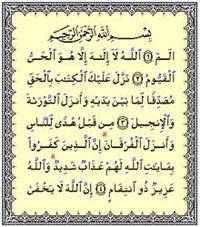 بِسْمِ ٱللَّهِ ٱلرَّحْمَٰنِ ٱلرَّحِيمِ
الٓمٓ ۝١ ٱللَّهُ لَآ إِلَٰهَ إِلَّا هُوَ ٱلْحَىُّ
ٱلْقَيُّومُ ۝٢ نَزَّلَ عَلَيْكَ ٱلْكِتَٰبَ بِٱلْحَقِّ
مُصَدِّقًا لِّمَا بَيْنَ يَدَيْهِ وَأَنزَلَ ٱلتَّوْرَىٰةَ
وَٱلْإِنجِيلَ ۝٣ مِن قَبْلُ هُدًى لِّلنَّاسِ
وَأَنزَلَ ٱلْفُرْقَانَ ۗ إِنَّ ٱلَّذِينَ كَفَرُوا۟
بِـَٔايَٰتِ ٱللَّهِ لَهُمْ عَذَابٌ شَدِيدٌ ۗ وَٱللَّهُ
عَزِيزٌ ذُو ٱنتِقَامٍ ۝٤ إِنَّ ٱللَّهَ لَا يَخْفَىٰ